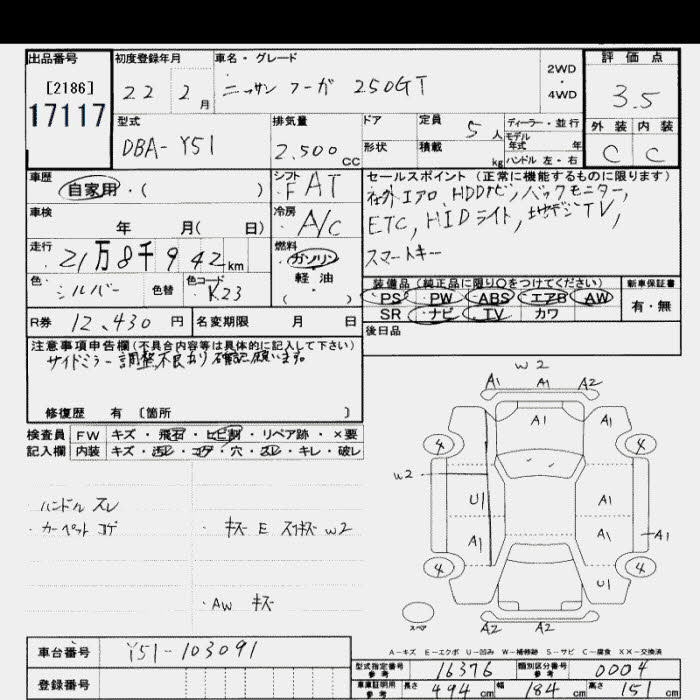 出品番号 初度登録年月 車名・グレード 評価点
[2186] 22 2月 ニッサン フーガ 250GT 2WD・4WD 3.5
17117 型式 排気量 ドア 定員 5人 ディーラー・並行 外装 内装
DBA-Y51 2.500cc 形状 積載 kg モデル年式 年 C C
ハンドル 左・右
車歴 シフト セールスポイント(正常に機能するものに限ります)
自家用・( ) FAT 社外エアロ, HDDナビ, バックモニター,
車検 年 月( 日) 冷房 A/C ETC, HIDライト, 地デジTV,
走行 21万8千942km 燃料 ガソリン スマートキー
軽油
( )
色 シルバー 色替 色コード K23 装備品(純正品に限り○をつけてください) 新車保証書
PS PW ABS エアB AW 有・無
SR ナビ TV カワ
R券 12,430円 名変期限 月 日 後日品
注意事項申告欄(不具合内容等は具体的に記入して下さい)
サイドミラー調整不良あり確認願います。
修復歴 有〔箇所 〕
検査員 FW キズ・飛石・ヒビ割・リペア跡・×要
記入欄 内装 キズ・汚レ・コゲ・穴・スレ・キレ・破レ
W2
A1 A1 A2
A1 A1
4 4
W2
U1 A1
A1 A1 A1
4 4
U1
スペア A2 A2
ハンドル スレ
・カーペット コゲ ・キズ E スリキズ W2
・AW キズ
A-キズ E-エクボ U-凹み W-補修跡 S-サビ C-腐食 XX-交換済
車台番号 Y51-103091 型式指定番号 参考 16376 類別区分番号 参考 0004
登録番号 車庫証明用 参考 長さ 494cm 幅 184cm 高さ 151cm